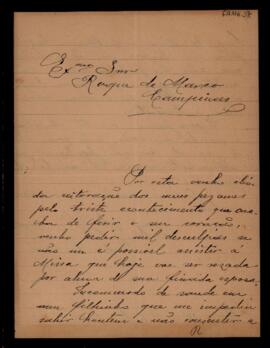 Exmo Snr
Roque de Marco
Campinas
Por esta venho
da reiteração dos meus pezames
pelo triste acontecimento que aca-
ba de ferir o seu coração,
venho pedir mil desculpas se
não me é possivel assistir á
Missa que hoje vae ser rezada
por alma de sua finada esposa.
Incommodo de saude em
um filhinho que me impediu
sahir hontem e não